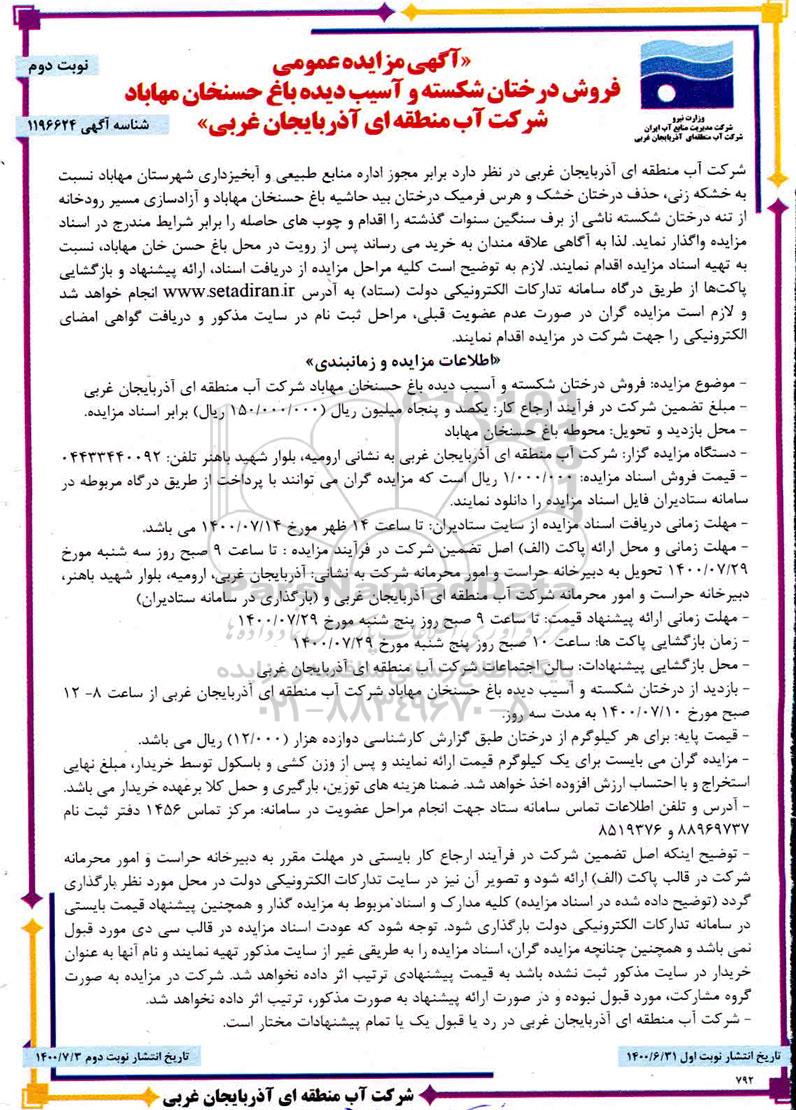 نوبت دوم
«آگهی مزایده عمومی
فروش درختان شکسته و آسیب دیده باغ حسنخان مهاباد
شرکت آب منطقه ای آذربایجان غربی»
شناسه آگهی ۱۱۹۶۶۲۴
وزارت نیرو
شرکت مدیریت منابع آب ایران
شرکت آب منطقه‌ای آذربایجان غربی
شرکت آب منطقه ای آذربایجان غربی در نظر دارد برابر مجوز اداره منابع طبیعی و آبخیزداری شهرستان مهاباد نسبت
به خشکه زنی، حذف درختان خشک و هرس فرمیک درختان بید حاشیه باغ حسنخان مهاباد و آزادسازی مسیر رودخانه
از تنه درختان شکسته ناشی از برف سنگین سنوات گذشته را اقدام و چوب های حاصله را برابر شرایط مندرج در اسناد
مزایده واگذار نماید. لذا به آگاهی علاقه مندان به خرید می رساند پس از رویت در محل باغ حسن خان مهاباد، نسبت
به تهیه اسناد مزایده اقدام نمایند. لازم به توضیح است کلیه مراحل مزایده از دریافت اسناد، ارائه پیشنهاد و بازگشایی
پاکت‌ها از طریق درگاه سامانه تدارکات الکترونیکی دولت (ستاد) به آدرس www.setadiran.ir انجام خواهد شد
و لازم است مزایده گران در صورت عدم عضویت قبلی، مراحل ثبت نام در سایت مذکور و دریافت گواهی امضای
الکترونیکی را جهت شرکت در مزایده اقدام نمایند.
«اطلاعات مزایده و زمانبندی»
- موضوع مزایده: فروش درختان شکسته و آسیب دیده باغ حسنخان مهاباد شرکت آب منطقه ای آذربایجان غربی
- مبلغ تضمین شرکت در فرآیند ارجاع کار: یکصد و پنجاه میلیون ریال (۱۵۰/۰۰۰/۰۰۰ ریال) برابر اسناد مزایده.
- محل بازدید و تحویل: محوطه باغ حسنخان مهاباد
- دستگاه مزایده گزار: شرکت آب منطقه ای آذربایجان غربی به نشانی ارومیه، بلوار شهید باهنر تلفن: ۰۴۴۳۳۴۴۰۰۹۲
- قیمت فروش اسناد مزایده: ۱/۰۰۰/۰۰۰ ریال است که مزایده گران می توانند با پرداخت از طریق درگاه مربوطه در
سامانه ستادیران فایل اسناد مزایده را دانلود نمایند.
- مهلت زمانی دریافت اسناد مزایده از سایت ستادیران: تا ساعت ۱۴ ظهر مورخ ۱۴۰۰/۰۷/۱۴ می باشد.
- مهلت زمانی و محل ارائه پاکت (الف) اصل تضمین شرکت در فرآیند مزایده : تا ساعت ۹ صبح روز سه شنبه مورخ
۱۴۰۰/۰۷/۲۹ تحویل به دبیرخانه حراست و امور محرمانه شرکت به نشانی: آذربایجان غربی، ارومیه، بلوار شهید باهنر،
دبیرخانه حراست و امور محرمانه شرکت آب منطقه ای آذربایجان غربی و (بارگذاری در سامانه ستادیران)
- مهلت زمانی ارائه پیشنهاد قیمت: تا ساعت ۹ صبح روز پنج شنبه مورخ ۱۴۰۰/۰۷/۲۹
- زمان بازگشایی پاکت ها: ساعت ۱۰ صبح روز پنج شنبه مورخ ۱۴۰۰/۰۷/۲۹
- محل بازگشایی پیشنهادات: سالن اجتماعات شرکت آب منطقه ای آذربایجان غربی
- بازدید از درختان شکسته و آسیب دیده باغ حسنخان مهاباد شرکت آب منطقه ای آذربایجان غربی از ساعت ۸- ۱۲
صبح مورخ ۱۴۰۰/۰۷/۱۰ به مدت سه روز.
- قیمت پایه: برای هر کیلوگرم از درختان طبق گزارش کارشناسی دوازده هزار (۱۲/۰۰۰) ریال می باشد.
- مزایده گران می بایست برای یک کیلوگرم قیمت ارائه نمایند و پس از وزن کشی و باسکول توسط خریدار، مبلغ نهایی
استخراج و با احتساب ارزش افزوده اخذ خواهد شد. ضمنا هزینه های توزین، بارگیری و حمل کلا برعهده خریدار می باشد.
- آدرس و تلفن اطلاعات تماس سامانه ستاد جهت انجام مراحل عضویت در سامانه: مرکز تماس ۱۴۵۶ دفتر ثبت نام
۸۸۹۶۹۷۳۷ و ۸۵۱۹۳۷۶
- توضیح اینکه اصل تضمین شرکت در فرآیند ارجاع کار بایستی در مهلت مقرر به دبیرخانه حراست و امور محرمانه
شرکت در قالب پاکت (الف) ارائه شود و تصویر آن نیز در سایت تدارکات الکترونیکی دولت در محل مورد نظر بارگذاری
گردد (توضیح داده شده در اسناد مزایده) کلیه مدارک و اسناد مربوط به مزایده گذار و همچنین پیشنهاد قیمت بایستی
در سامانه تدارکات الکترونیکی دولت بارگذاری شود. توجه شود که عودت اسناد مزایده در قالب سی دی مورد قبول
نمی باشد و همچنین چنانچه مزایده گران، اسناد مزایده را به طریقی غیر از سایت مذکور تهیه نمایند و نام آنها به عنوان
خریدار در سایت مذکور ثبت نشده باشد به قیمت پیشنهادی ترتیب اثر داده نخواهد شد. شرکت در مزایده به صورت
گروه مشارکت، مورد قبول نبوده و در صورت ارائه پیشنهاد به صورت مذکور، ترتیب اثر داده نخواهد شد.
- شرکت آب منطقه ای آذربایجان غربی در رد یا قبول یک یا تمام پیشنهادات مختار است.
تاریخ انتشار نوبت اول ۱۴۰۰/۶/۳۱
تاریخ انتشار نوبت دوم ۱۴۰۰/۷/۳
۷۹۲
شرکت آب منطقه ای آذربایجان غربی
ParsNamadData
۰۲۱-۸۸۳۴۹۶۷۰-۵